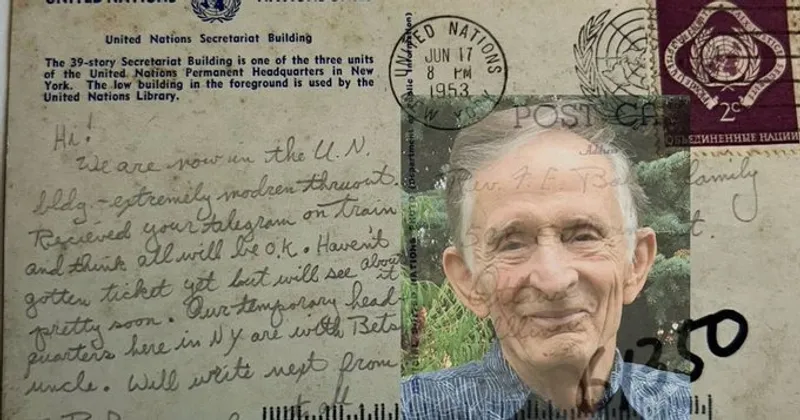 UNITED NATIONS
United Nations Secretariat Building
The 39-story Secretariat Building is one of the three units
of the United Nations Permanent Headquarters in New
York. The low building in the foreground is used by the
United Nations Library.
UNITED NATIONS
JUN 17
8 PM
1953
NEW YORK
2¢
ОБЪЕДИНЕННЫЕ НАЦИИ
POST CA
Address
Hi!
We are now in the U.N.
bldg - extremely modren thruout.
Recieved your telegram on train
and think all will be O.K. Haven't
gotten ticket yet but will see about
it
pretty soon. Our temporary head-
quarters here in NY are with Bets
uncle. Will write next from
Rev. F. E. family
61350